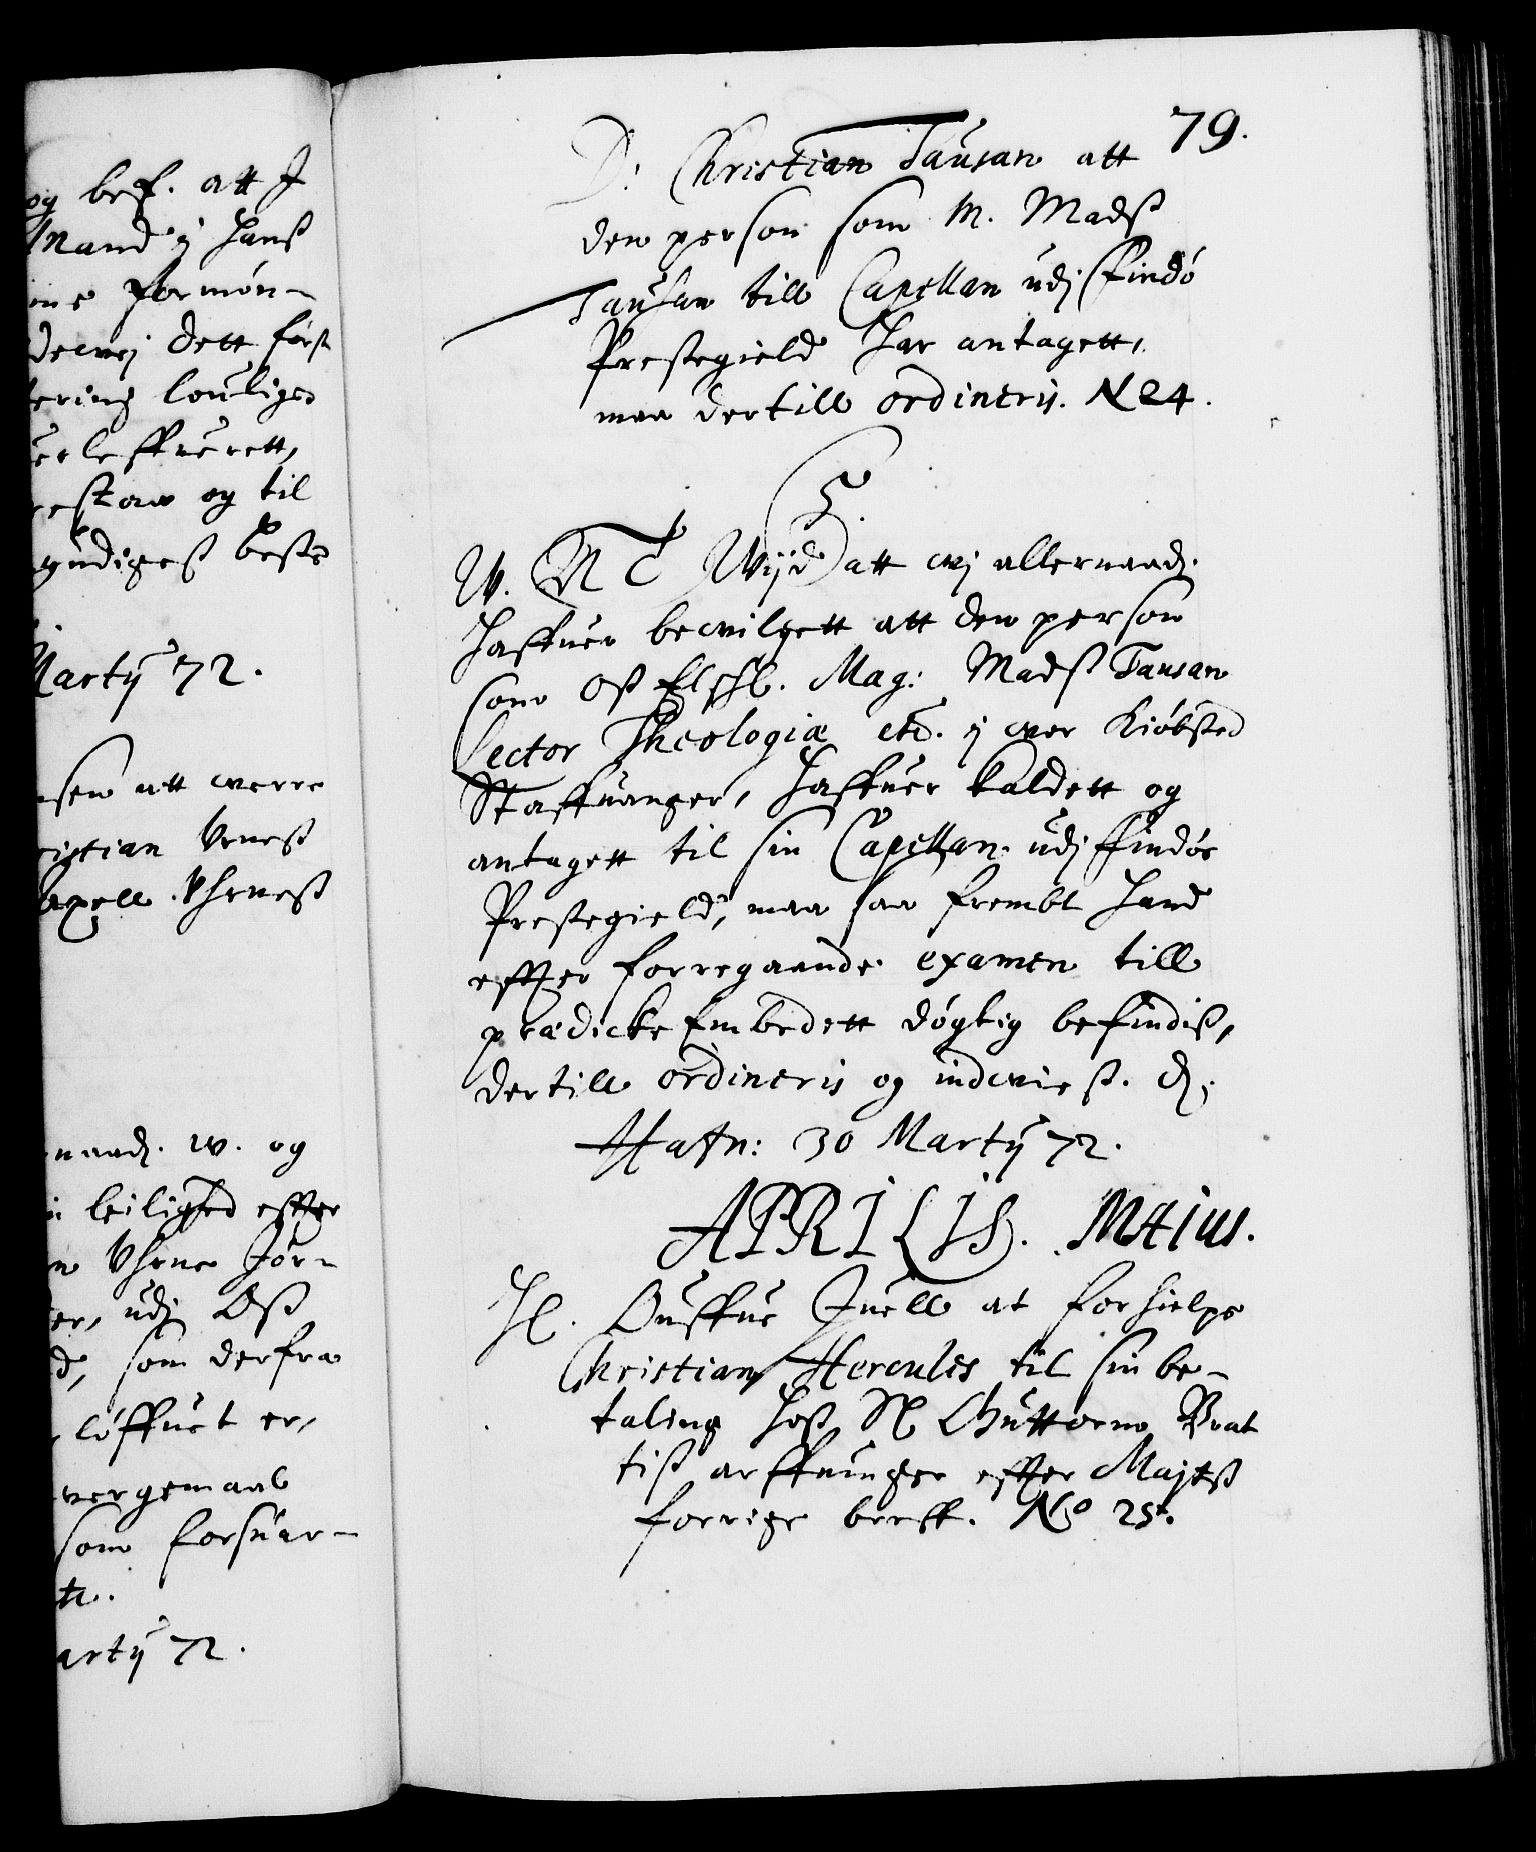 og bef. att I
Mand i Hans
ine formøn-
decvej dett først
tering louliges
uerleffuerett,
restan og til
gnudigest beste
Martij 72.
nsen att werre
ristian Urnes
apell Uhrneß
naadj. w. og
n leilighed effter
n Uhrne Jør-
er, udj Oß
d, som derfra
løffuet er,
vergemaal
som forsuar-
te.
artij 72.
79.
D: Christian Tausan att
den person som M. Madß
Tausan till Capellan udj Findø
Prestegield har antagett,
maa dertill ordineris. N 24.
C 5.
W. G T Wijd att wj allernaadj.
haffuer bewilgett att den person
som Oß Elschl. Mag: Madß Tausan
Lector Theologiæ etc. i wor Kiøbsted
Staffuanger, haffuer kaldett og
antagett til sin Capellan udj Findøe
Prestegield, maa saa frembt hand
effter forregaaende examen till
prædicke Embedett døgtig befindiß,
dertill ordineris og indwieß. dj.
Hafn: 30 Martij 72.
APRILIS. Maius.
Hl. Ouffue Juell at forhielpe
Christian Hercules til sin be-
taling hoß Sl Guttorm Brat
tiß arffuinger effter Majtß
forrige breff. No 25.